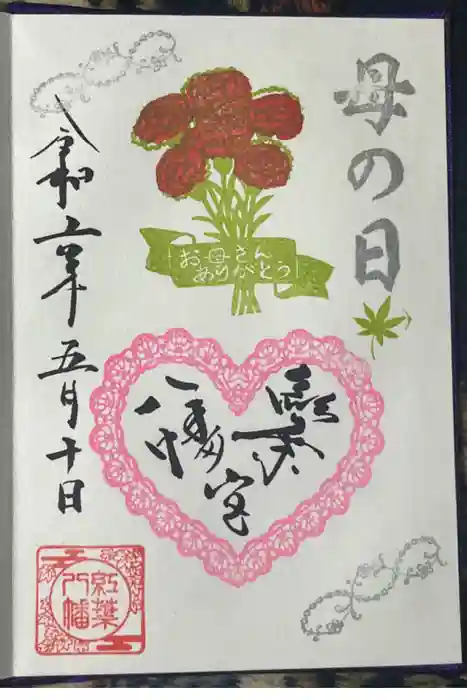 母の日
お母さん
ありがとう
紅葉
八幡宮
令和二年五月十日
紅葉
八幡